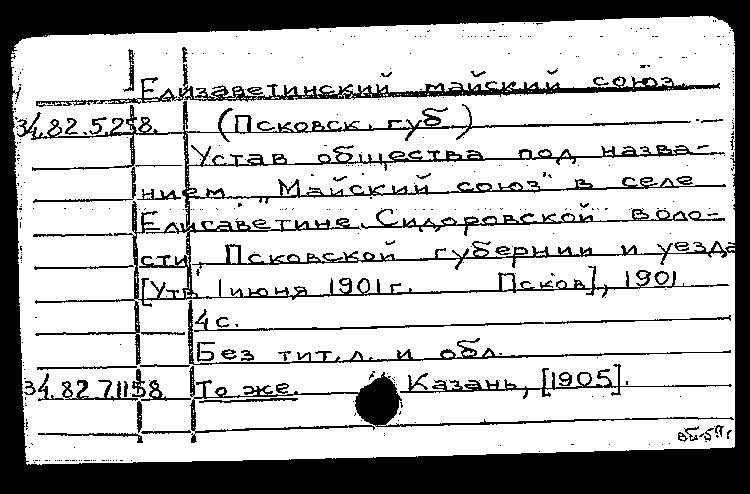 Елизаветинский майский союз.
34.82.5.258. (Псковск. губ.)
Устав общества под назва-
нием „Майский союз" в селе
Елисаветине, Сидоровской воло-
сти, Псковской губернии и уезда
[Утв. 1 июня 1901 г. Псков], 1901
4 с.
Без тит. л. и обл.
34.82.7.1158 То же. Казань, [1905].